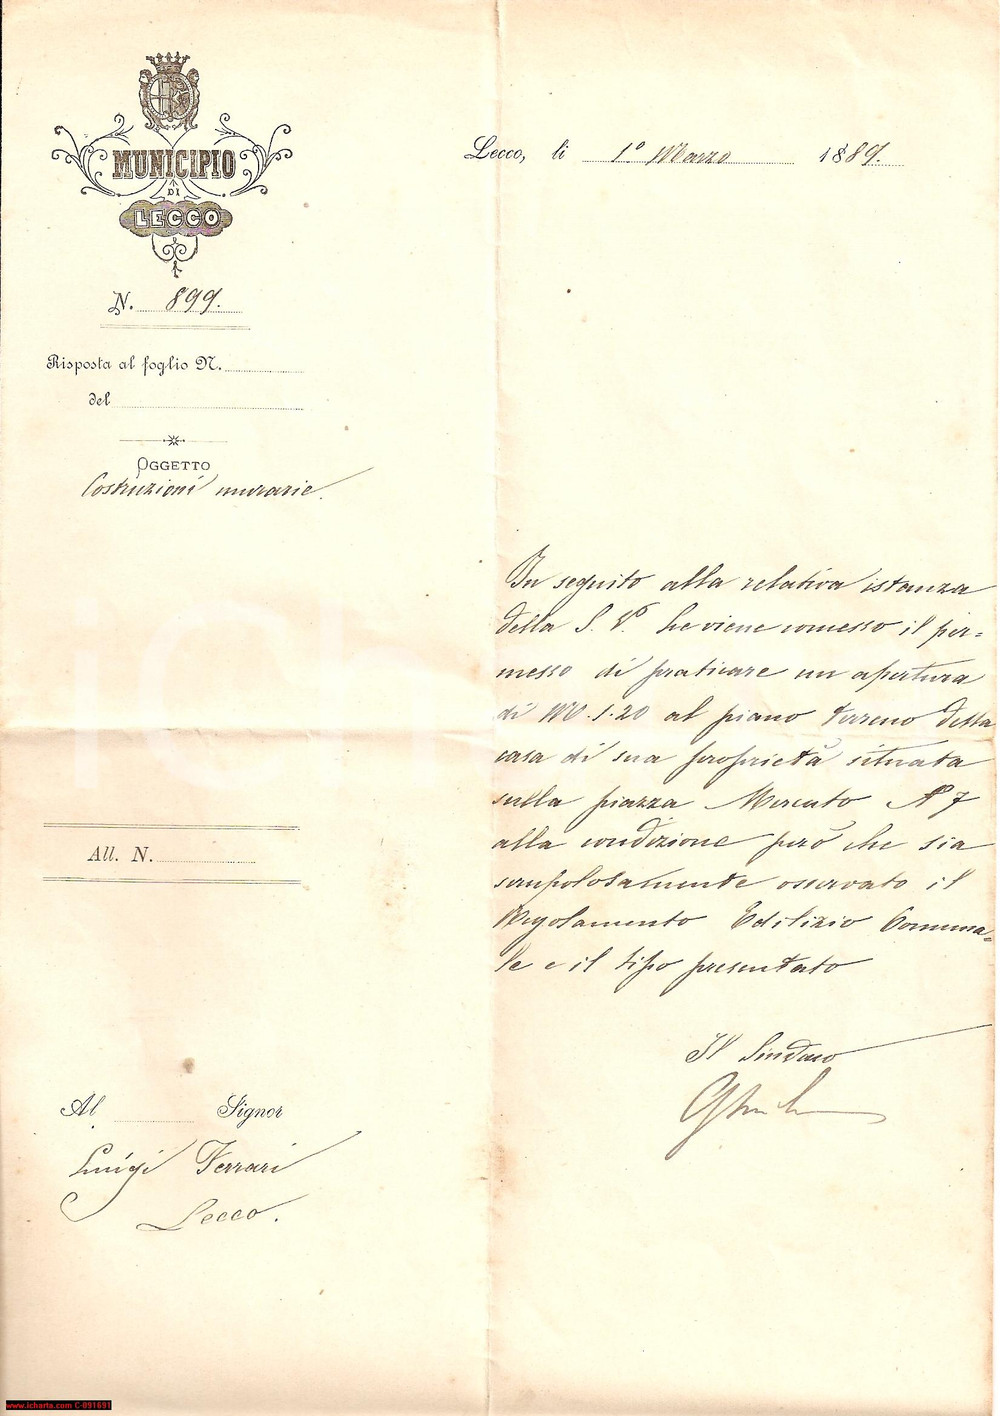 MUNICIPIO
DI
LECCO
N. 899.
Risposta al foglio N.
del
OGGETTO
Costruzioni murarie.
All. N.
Al Signor
Luigi Ferrari
Lecco.
Lecco, li 1° Marzo 1889.
In seguito alla relativa istanza
della S. V. le viene concesso il per=
messo di praticare un apertura
di M. 1.20 al piano terreno della
casa di sua proprietà situata
sulla piazza Mercato N° 7
alla condizione però che sia
scrupolosamente osservato il
Regolamento Edilizio Comuna=
le e il tipo presentato
Il Sindaco
www.icharta.com C-091691